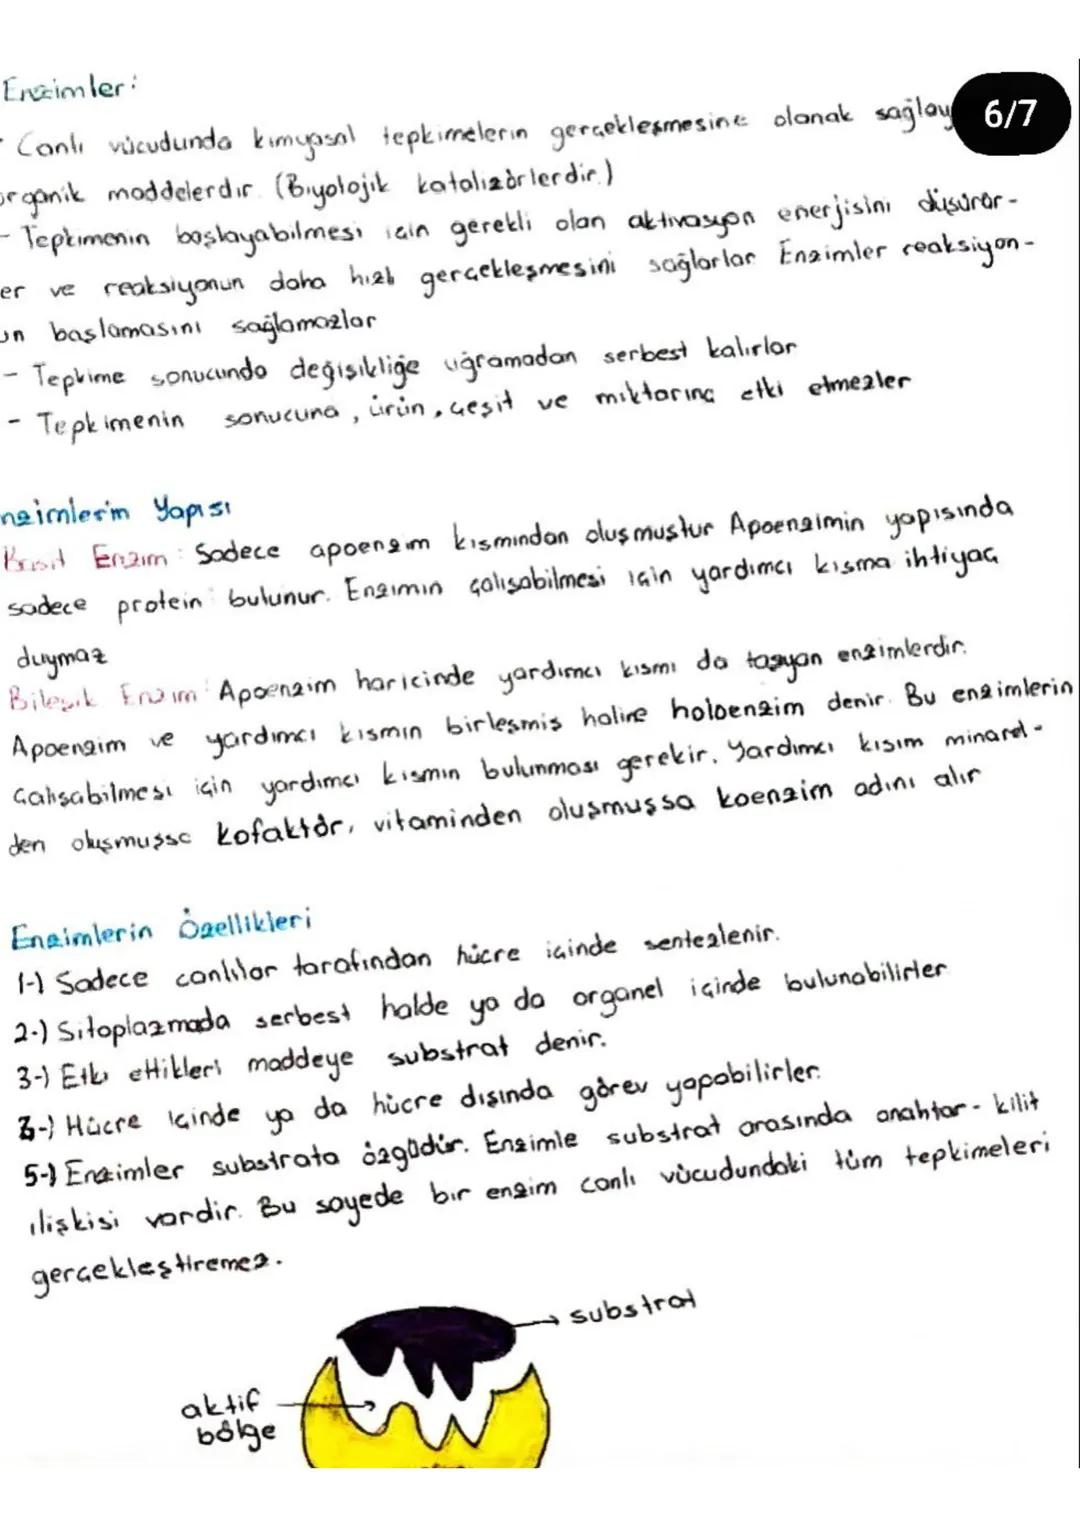 Enzimler:
6/7
- Canlı vücudunda kimyasal tepkimelerin gerçekleşmesine olanak sağlay
organik maddelerdir. (Biyolojik katalizörlerdir.)
- Tepkimenin başlayabilmesi için gerekli olan aktivasyon enerjisini düşürür-
er ve reaksiyonun daha hızlı gerçekleşmesini sağlarlar Enzimler reaksiyon-
un başlamasını sağlamazlar
- Tepkime sonucunda değişikliğe uğramadan serbest kalırlar
- Tepkimenin sonucuna, ürün, çeşit ve miktarına etki etmezler
nzimlerin Yapısı
Basit Enzim: Sadece apoenzim kısmından oluşmuştur Apoenzimin yapısında
sadece protein bulunur. Enzimin çalışabilmesi için yardımcı kısma ihtiyaç
duymaz
Bileşik Enzim: Apoenzim haricinde yardımcı kısmı da taşıyan enzimlerdir.
Apoenzim ve yardımcı kısmın birleşmiş haline holoenzim denir. Bu enzimlerin
çalışabilmesi için yardımcı kısmın bulunması gerekir. Yardımcı kısım minarel-
den oluşmuşsa kofaktör, vitaminden oluşmuşsa koenzim adını alır
Enzimlerin Özellikleri
1-) Sadece canlılar tarafından hücre içinde sentezlenir.
2-) Sitoplazmada serbest halde ya da organel içinde bulunabilirler
3-) Etki ettikleri maddeye substrat denir.
3-) Hücre içinde ya da hücre dışında görev yapabilirler.
5-) Enzimler substrata özgüdür. Enzimle substrat arasında anahtar-kilit
ilişkisi vardır. Bu sayede bir enzim canlı vücudundaki tüm tepkimeleri
gerçekleştiremez.
substrat
aktif
bölge